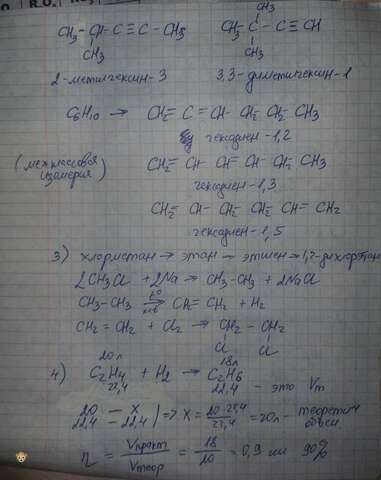 CH₃ - CH - C ≡ C - CH₃
CH₃
CH₃
CH₃ - C - C ≡ CH
CH₃
2-метилгексин-3
3,3-диметилгексин-1
C₆H₁₀ → CH₂ = C = CH - CH₂ - CH₂ - CH₃
гексадиен-1,2
(межклассовая изомерия)
CH₂ = CH - CH = CH - CH₂ - CH₃
гексадиен-1,3
CH₂ = CH - CH₂ - CH₂ - CH = CH₂
гексадиен-1,5
3) хлорметан → этан → этилен → 1,2-дихлорэтан
2CH₃Cl + 2Na → CH₃-CH₃ + 2NaCl
CH₃-CH₃ t° → CH₂=CH₂ + H₂
CH₂=CH₂ + Cl₂ → CH₂ - CH₂
Cl Cl
20л 18л
4) C₂H₄ + H₂ → C₂H₆
22,4 22,4 - это Vm
20 - x
22,4 - 22,4 | => x = 20·22,4 / 22,4 = 20л - теоретич
η = Vпракт / Vтеор = 18 / 20 = 0,9 или 90%